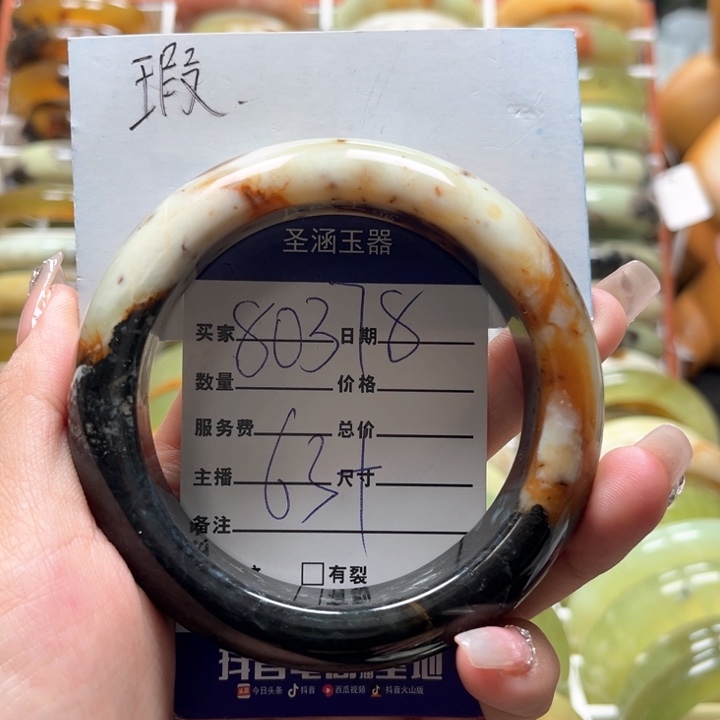 瑕.
圣涵玉器
买家 80378 日期
数量 价格
服务费 总价
主播 63+ 尺寸
备注
□有裂
今日头条 抖音 西瓜视频 抖音火山版